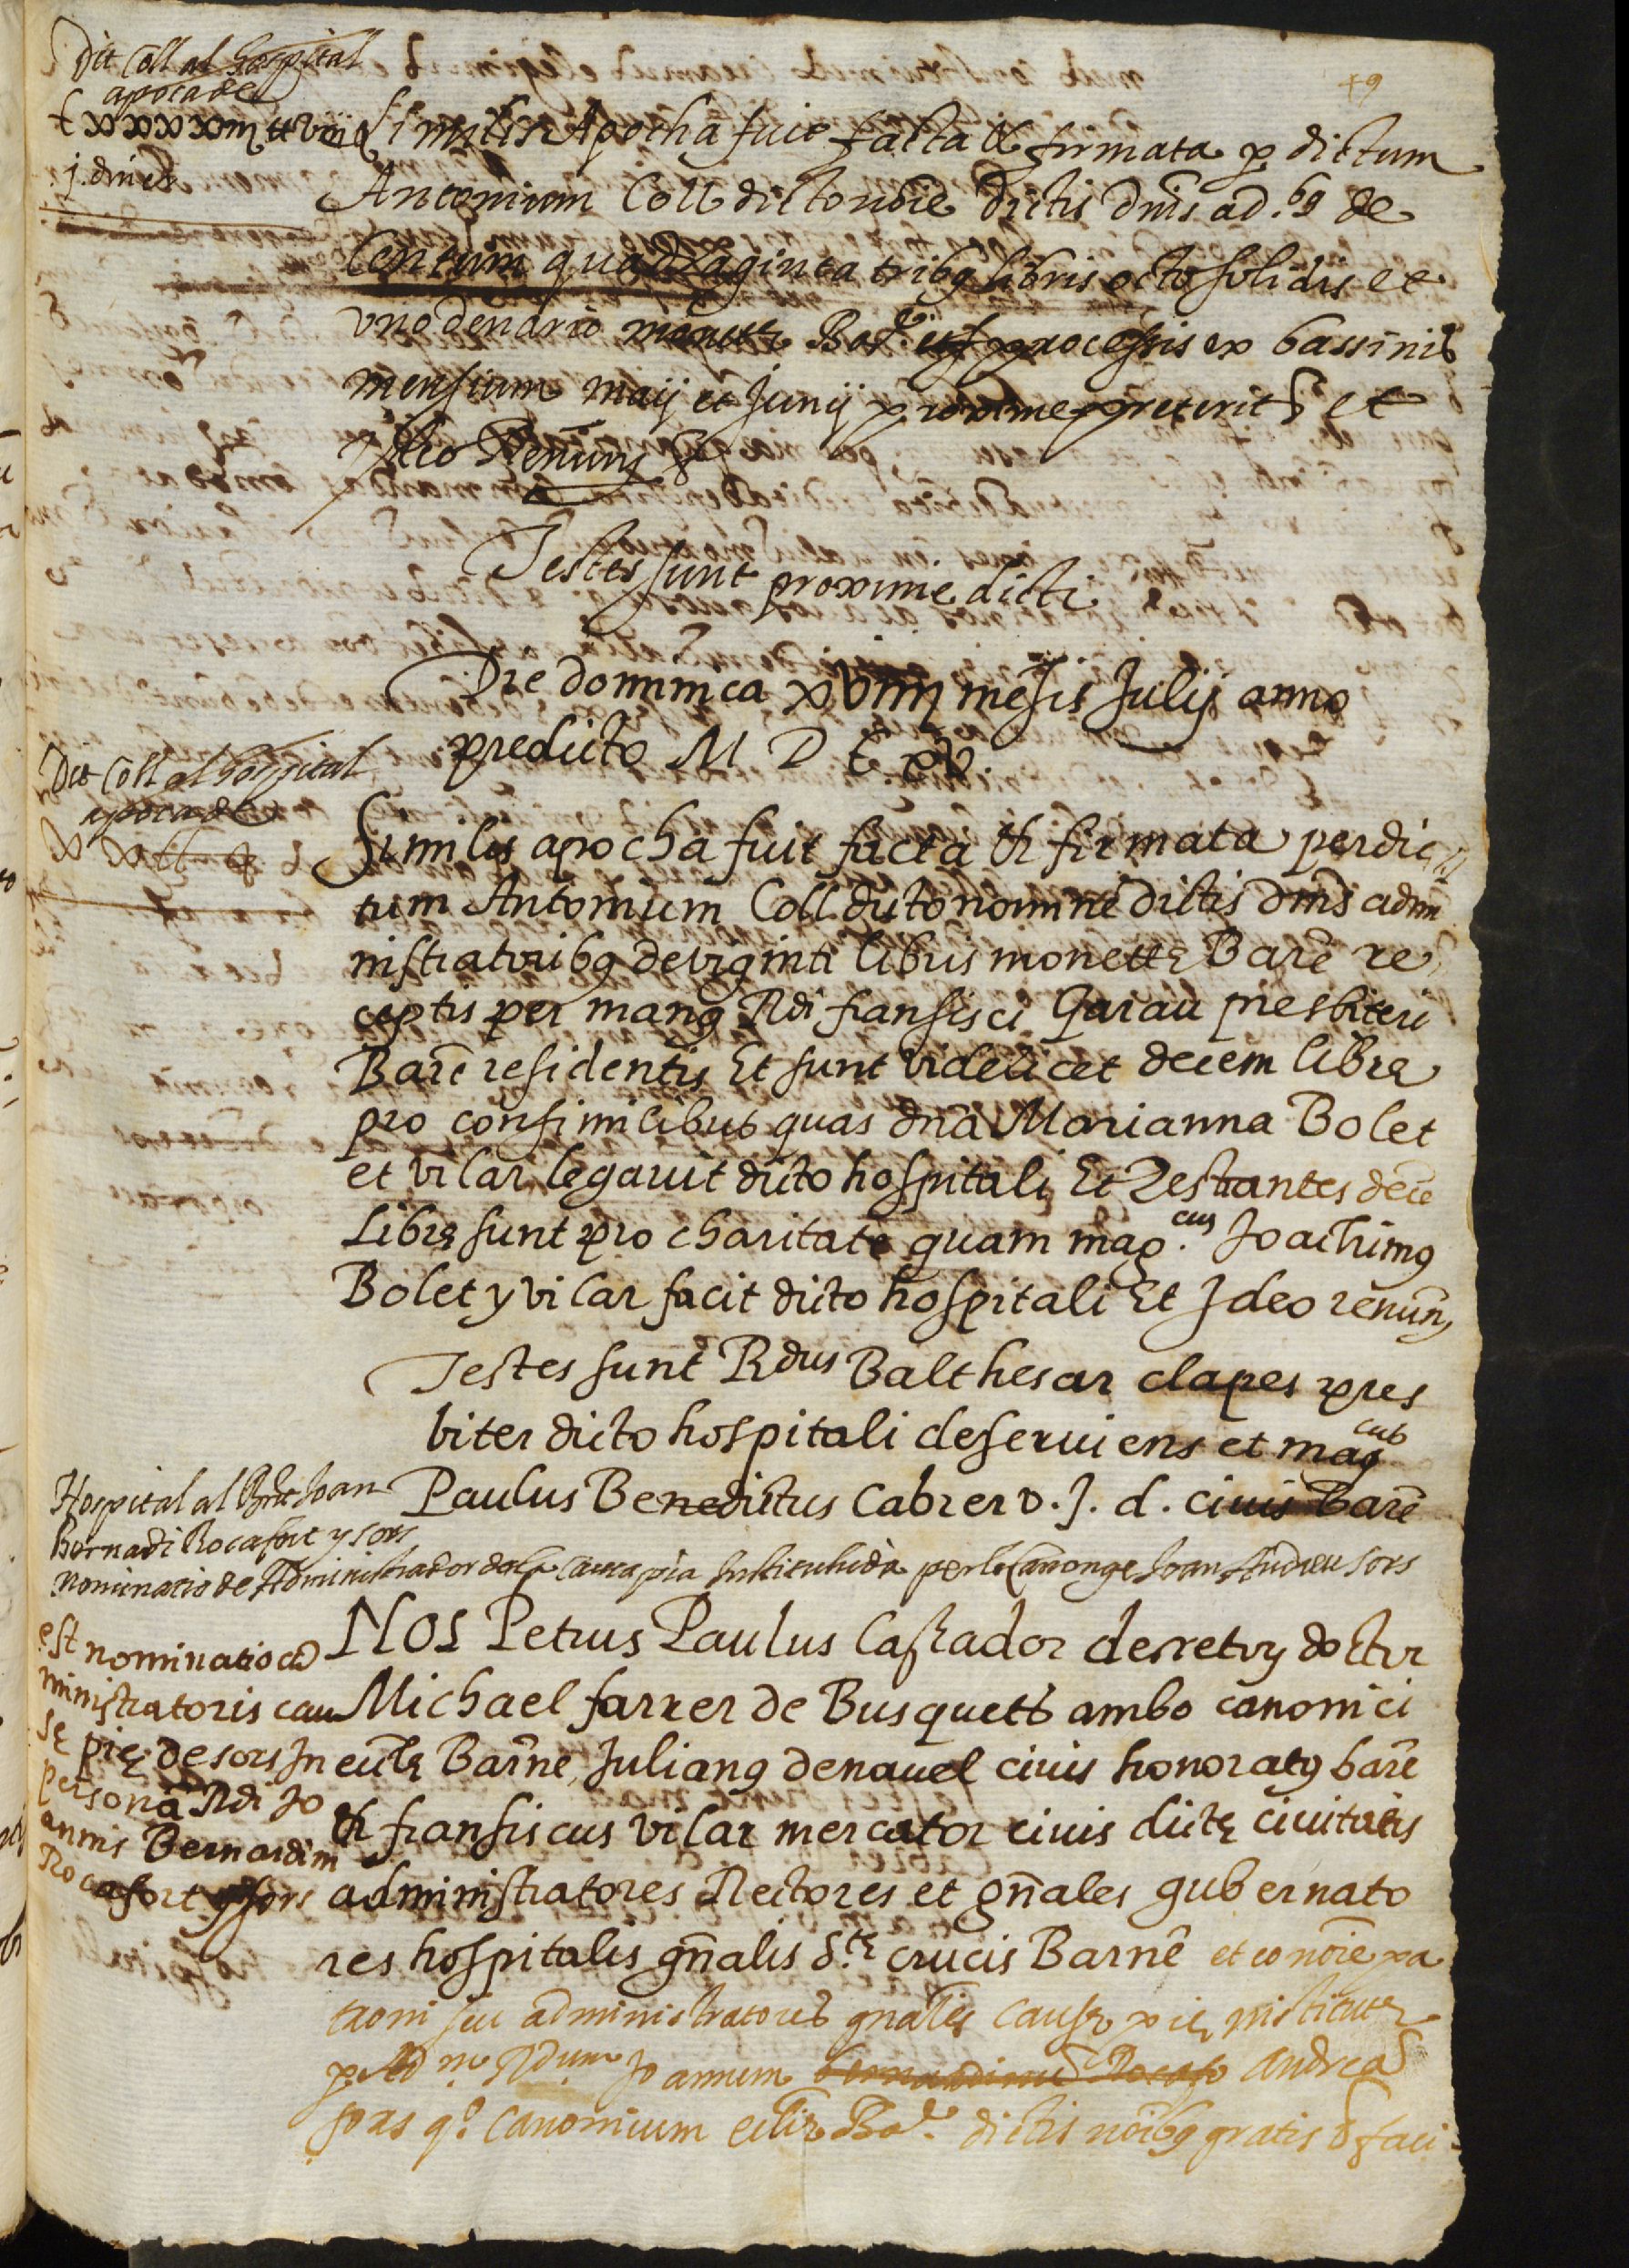 49
Dit Coll al Hospital
apoca de
C xxxxiii ll viii s
j. diner
Similis Apocha fuit facta & firmata p dictum
Antonium Coll dicto noie dictis dnis ad.bg de
Centum quadraginta tribg libris octo solidis et
uno denario monete Bar.e processis ex bassinis
mensium maij et Junij proxime preterit et
Ideo Renung &
Testes sunt proxime dicti
Die dominica xviiij mesis Julij anno
predicto M D C xv.
Dit Coll al hospital
apoca de
xx ll
Similis apocha fuit facta & firmata per dic
tum Antonium Coll dicto nomine dictis dnis admi
nistratoribg de viginti libris monete Barne re
ceptis per mang Rdi fransisci Garau presbiteri
Barne residentis Et sunt videlicet decem libre
pro consimilibus quas dna Marianna Bolet
et vilar legavit dicto hospitali Et Restantes dece
Libre sunt pro charitate quam mag.cus Joachimg
Bolet y vilar facit dicto hospitali Et Ideo renung
Testes sunt Rdus Balthesar clapes pres
biter dicto hospitali deserviens et magcus
Paulus Benedictus Cabrer v. J. d. civis Barne
Hospital al Rnt Joan
Bernadi Rocafort y sors
nominatio de Administrador de la causa pia Instituhida per lo Canonge Joan Andreu sors
est nominatio ad
ministratoris cau
se pie de sors In
persona Rdi Jo
annis Bernardini
Rocafort y sors
Nos Petrus Paulus Cassador decretorum doctor
Michael farrer de Busquets ambo canonici
eccle Barne, Juliang de navel civis honoratg barne
& fransiscus vilar mercator civis dicte civitatis
administratores Rectores et gnales gubernato
res hospitalis gnalis S.te crucis Barne et eo noie pa
troni seu administratores gnales Cause pie institute
p Adm. Rdum Joannem bernardinu Rocafo Andreas
sors q.o Canonicum eclie Bar.e dictis noibg gratis & faci